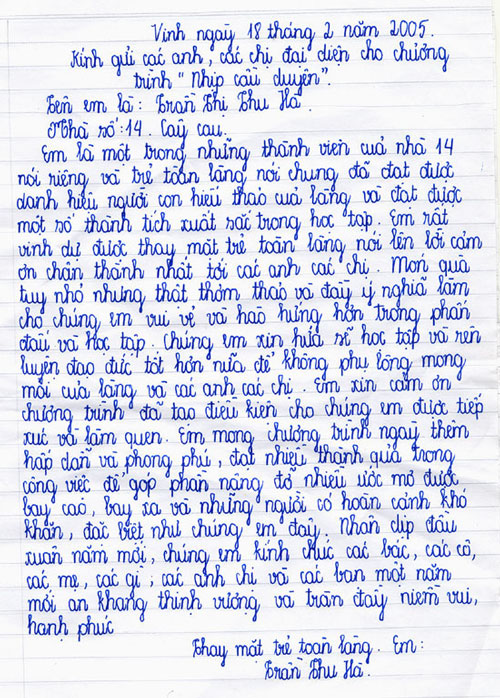 Vinh ngày 18 tháng 2 năm 2005.
Kính gửi các anh, các chị đại diện cho chương
trình "Nhịp cầu duyên".
Tên em là : Trần Thị Thu Hà.
Nhà số : 14. Cây cau.
Em là một trong những thành viên của nhà 14
nói riêng và trẻ toàn làng nói chung đã đạt được
danh hiệu người con hiếu thảo của làng và đạt được
một số thành tích xuất sắc trong học tập. Em rất
vinh dự được thay mặt trẻ toàn làng nói lên lời cảm
ơn chân thành nhất tới các anh các chị. Món quà
tuy nhỏ nhưng thật thơm thảo và đầy ý nghĩa làm
cho chúng em vui vẻ và hào hứng hơn trong phấn
đấu và học tập. Chúng em xin hứa sẽ học tập và rèn
luyện đạo đức tốt hơn nữa để không phụ lòng mong
mỏi của làng và các anh các chị. Em xin cảm ơn
chương trình đã tạo điều kiện cho chúng em được tiếp
xúc và làm quen. Em mong chương trình ngày thêm
hấp dẫn và phong phú, đạt nhiều thành quả trong
công việc để góp phần nâng đỡ nhiều ước mơ được
bay cao, bay xa và những người có hoàn cảnh khó
khăn, đặc biệt như chúng em đây. Nhân dịp đầu
xuân năm mới, chúng em kính chúc các bác, các cô,
các mẹ, các gì ; các anh chị và các bạn một năm
mới an khang thịnh vượng và tràn đầy niềm vui,
hạnh phúc
Thay mặt trẻ toàn làng. Em :
Trần Thu Hà.